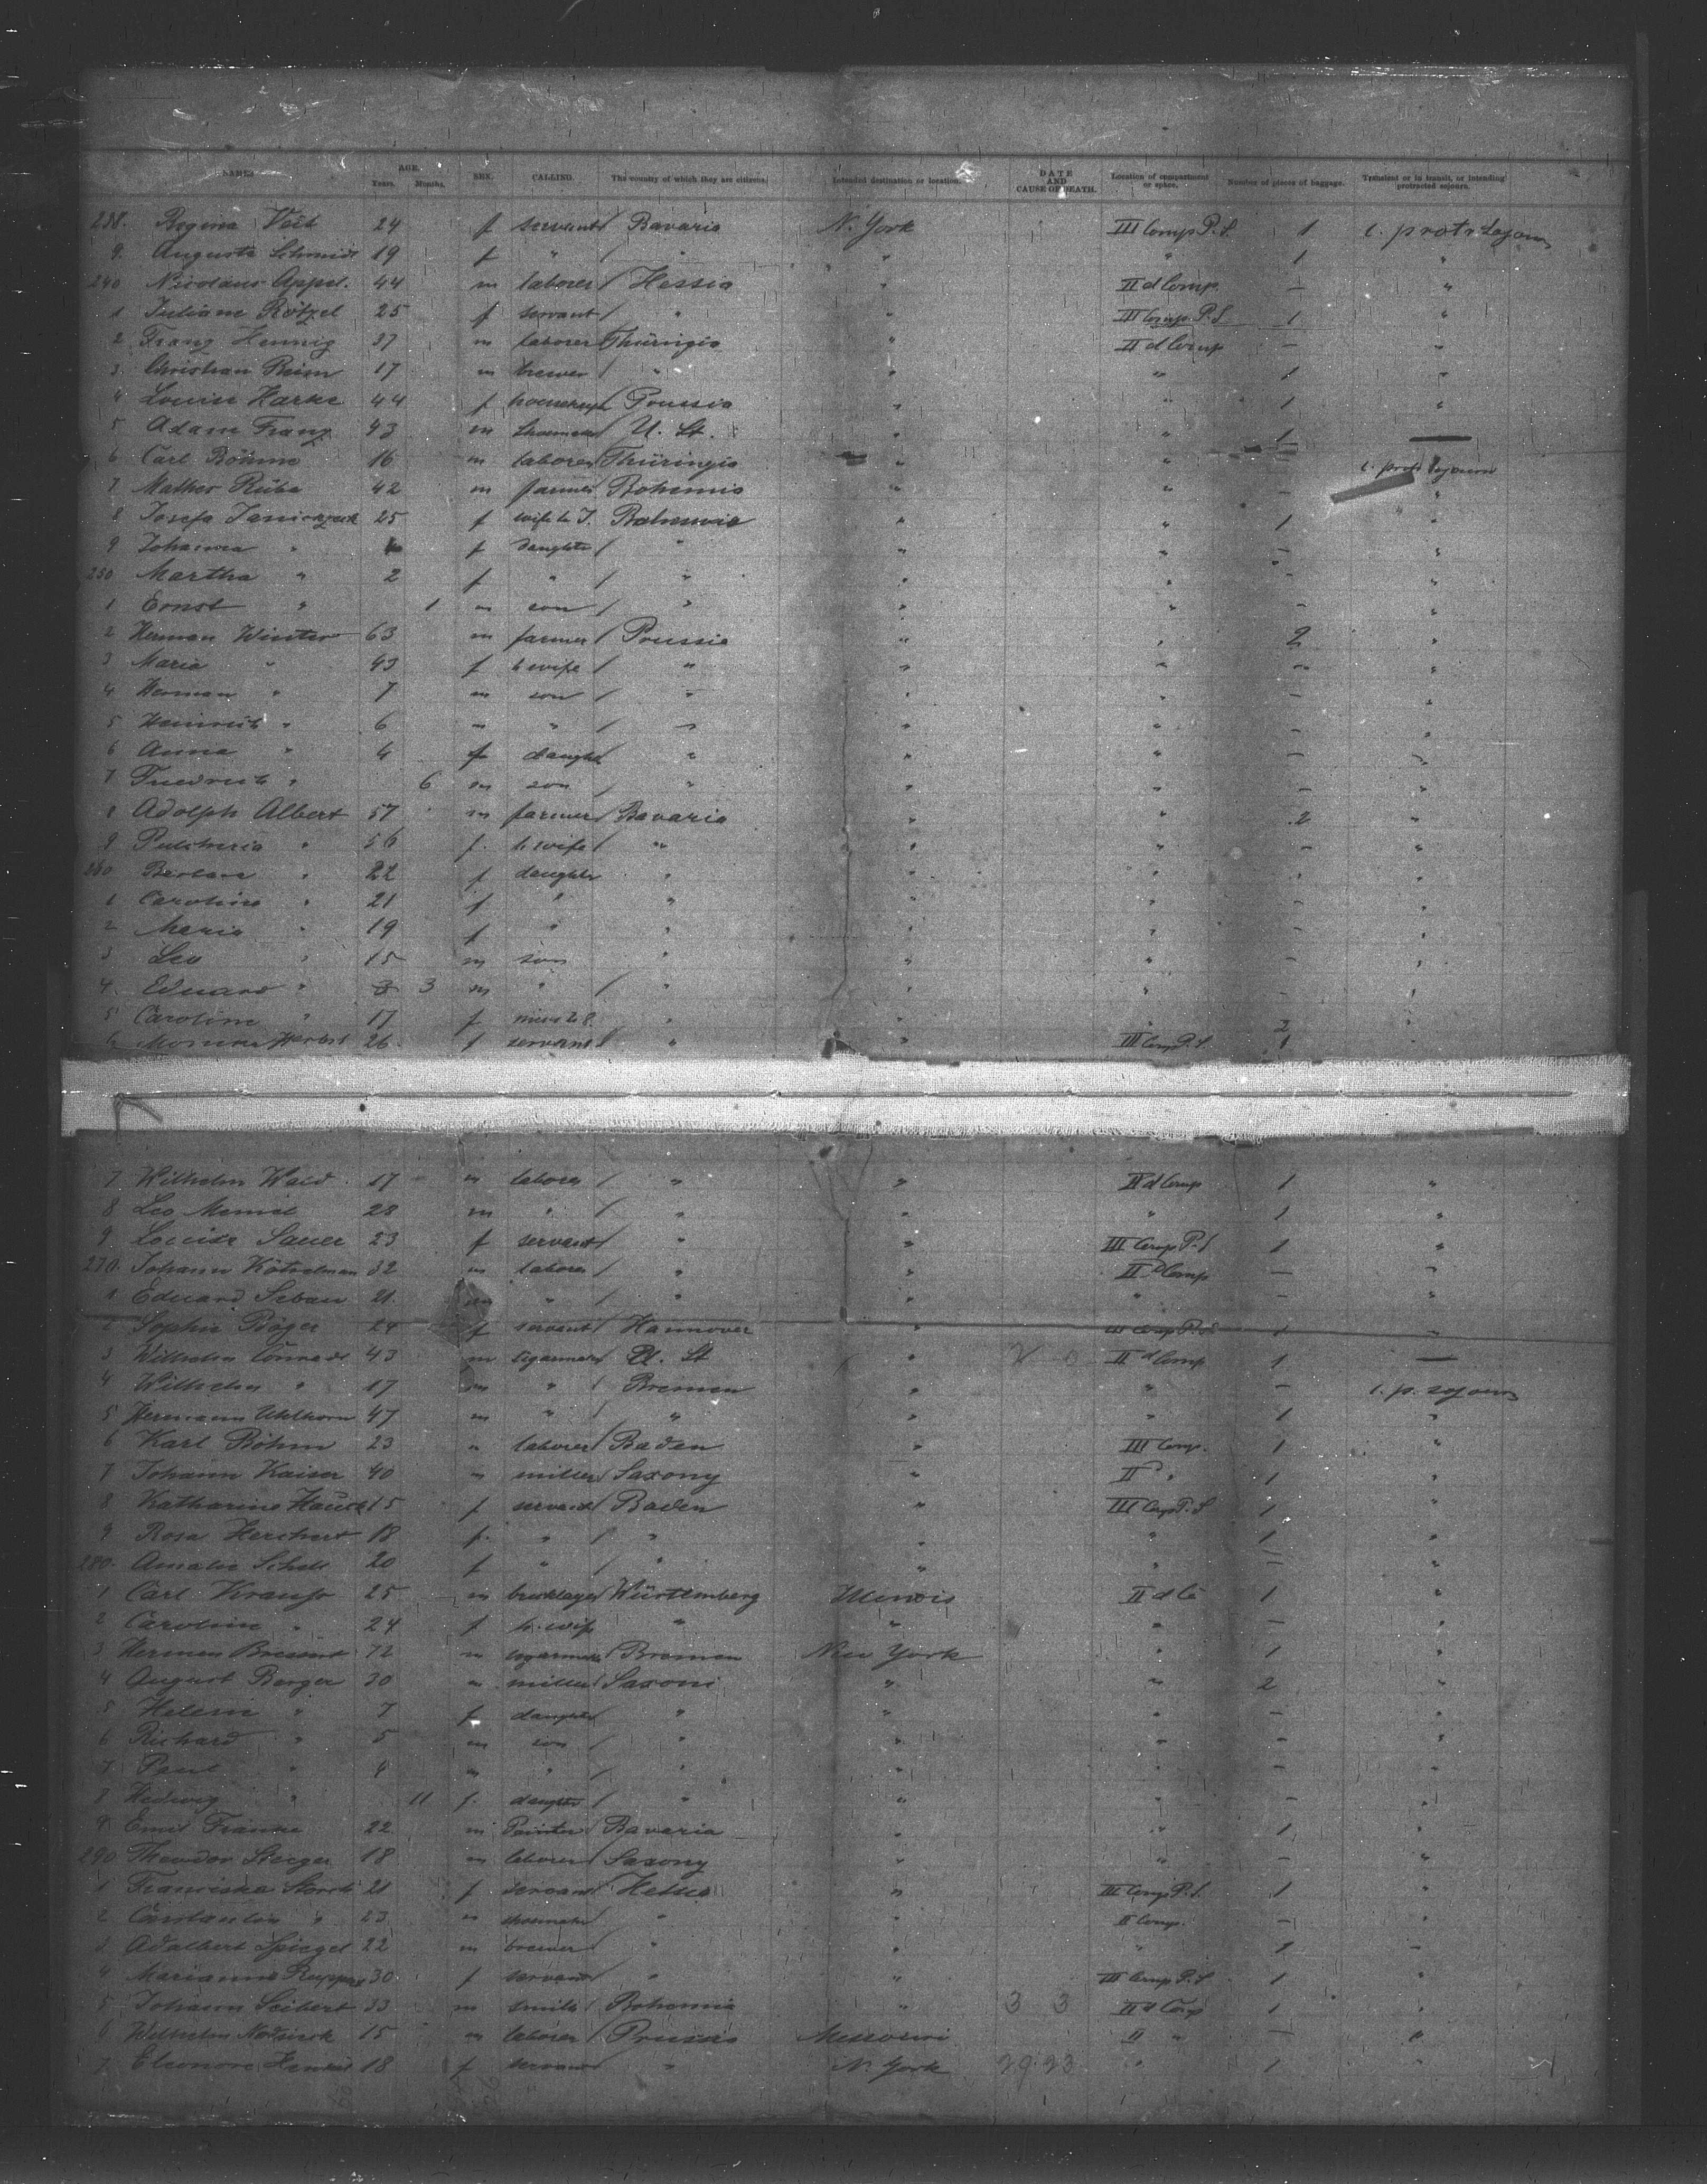 NAMES AGE. Years. Months. SEX. CALLING. The country of which they are citizens. Intended destination or location. DATE AND CAUSE OF DEATH. Location of compartment or space. Number of pieces of baggage. Transient or in transit, or intending protracted sojourn.
238. Regina Veit 24 f servant Bavaria N. York III Comp P. S. 1 i. protr. sojourn
9. Auguste Schmidt 19 f " / " " " 1 "
240 Nicolaus Appel. 44 m laborer / Hessia " II d Comp. — "
1 Juliane Rötzel 25 f servant / " " III Comp. P. S 1 "
2 Franz Hennig 37 m laborer Thüringia " II d Comp — "
3. Christian 17 m brewer / " " " 1 "
4 Louise Harke 44 f Prussia " " 1 "
5 Adam Franz 43 m U. St. " " 1 —
6 Carl Böhme 16 m laborer Thüringia " " — i. protr sojourn
7 42 m farmer Bohemia " " — "
8 Josefa 25 f wife to J. Bohemia " " 1 "
9 Johanna " f daughter / " " " — "
250 Martha " 2 f " / " " " — "
1 Ernst " 1 m son / " " " — "
2 Herman Winter 63 m farmer / Prussia " " 2 "
3 Maria " 43 f h wife / " " " — "
4 Herman " 7 m son / " " " — "
5 Heinrich " 6 m " / " " " — "
6 Anna " 4 f daught / " " " — "
7 Friedrich " 6 m son / " " " — "
8 Adolph Albert 57 m farmer / Bavaria " " 2 "
9 Pulcheria " 56 f. h. wife / " " " — "
260 Barbara " 22 f daughter " " " — "
1 Caroline " 21 f " " " " — "
2 Maria " 19 f " " " " — "
3 Leo " 15 m son " " " — "
4. Eduard " 3 m " / " " " — "
5 Caroline " 17 f " " " 2 "
6 Herbst 26 f servant / " " III Comp P. S. 1 "
7 Wilhelm Wald 17 m laborer / " " II d Comp 1 "
8 Leo 28 m " / " " " 1 "
9 Louise Sauer 23 f servant / " " III Comp P. S 1 "
270. Johann 32 m laborer / " " II d Comp — "
1 Eduard 21. m " / " " " — "
2 Sophie Böger 24 f servant / Hannover " III Comp P. S. 1 "
3 Wilhelm Conradt 43 m cigarmaker U. St " II d Comp 1 —
4 Wilhelm " 17 m " / Bremen " " — i. p. sojourn
5 Hermann Uhlhorn 47 m " / " " " 1 "
6 Karl Böhm 23 m laborer / Baden " III Comp. 1 "
7 Johann Kaiser 40 m miller / Saxony " II d " 1 "
8 Katharine Hauck 15 f servant / Baden " III Comp P. S 1 "
9 Rosa 18 f. " / " " " 1 "
280. Amalie Schell 20 f " / " " " — "
1 Carl Krauss 25 m bricklayer Württemberg Illinois II d Co 1 "
2 Caroline " 24 f h. wife " " " — "
3 Herman 72 m cigarmaker Bremen New York " 1 "
4 August Berger 30 m miller / Saxoni " " 2 "
5 Helene " 7 f daughter " " " — "
6 Richard " 5 m son / " " " — "
7 Paul " 4 m " / " " " — "
8 Hedwig " 11 f. daughter / " " " — "
9 Emil Franke 22 m Painter / Bavaria " " 1 "
290 Theodor Steeger 18 m laborer / Saxony " " — "
1 Franziska Storch 21 f servant / Hessia " III Comp P. S. 1 "
2 Constantin " 23 m shoemaker / " " II Comp. — "
3 Adalbert Spiegel 22 m brewer / " " " 1 "
4 Marianne Ruppel 30. f servant " " III Comp P. S 1 "
5 Johann Seibert 33 m smith / Bohemia " 3 3 II d Comp 1 "
6 Wilhelm 15 m laborer / Prussia Missouri II " — "
7 Eleonore 18 f servant " N. York 29 23 " 1 "